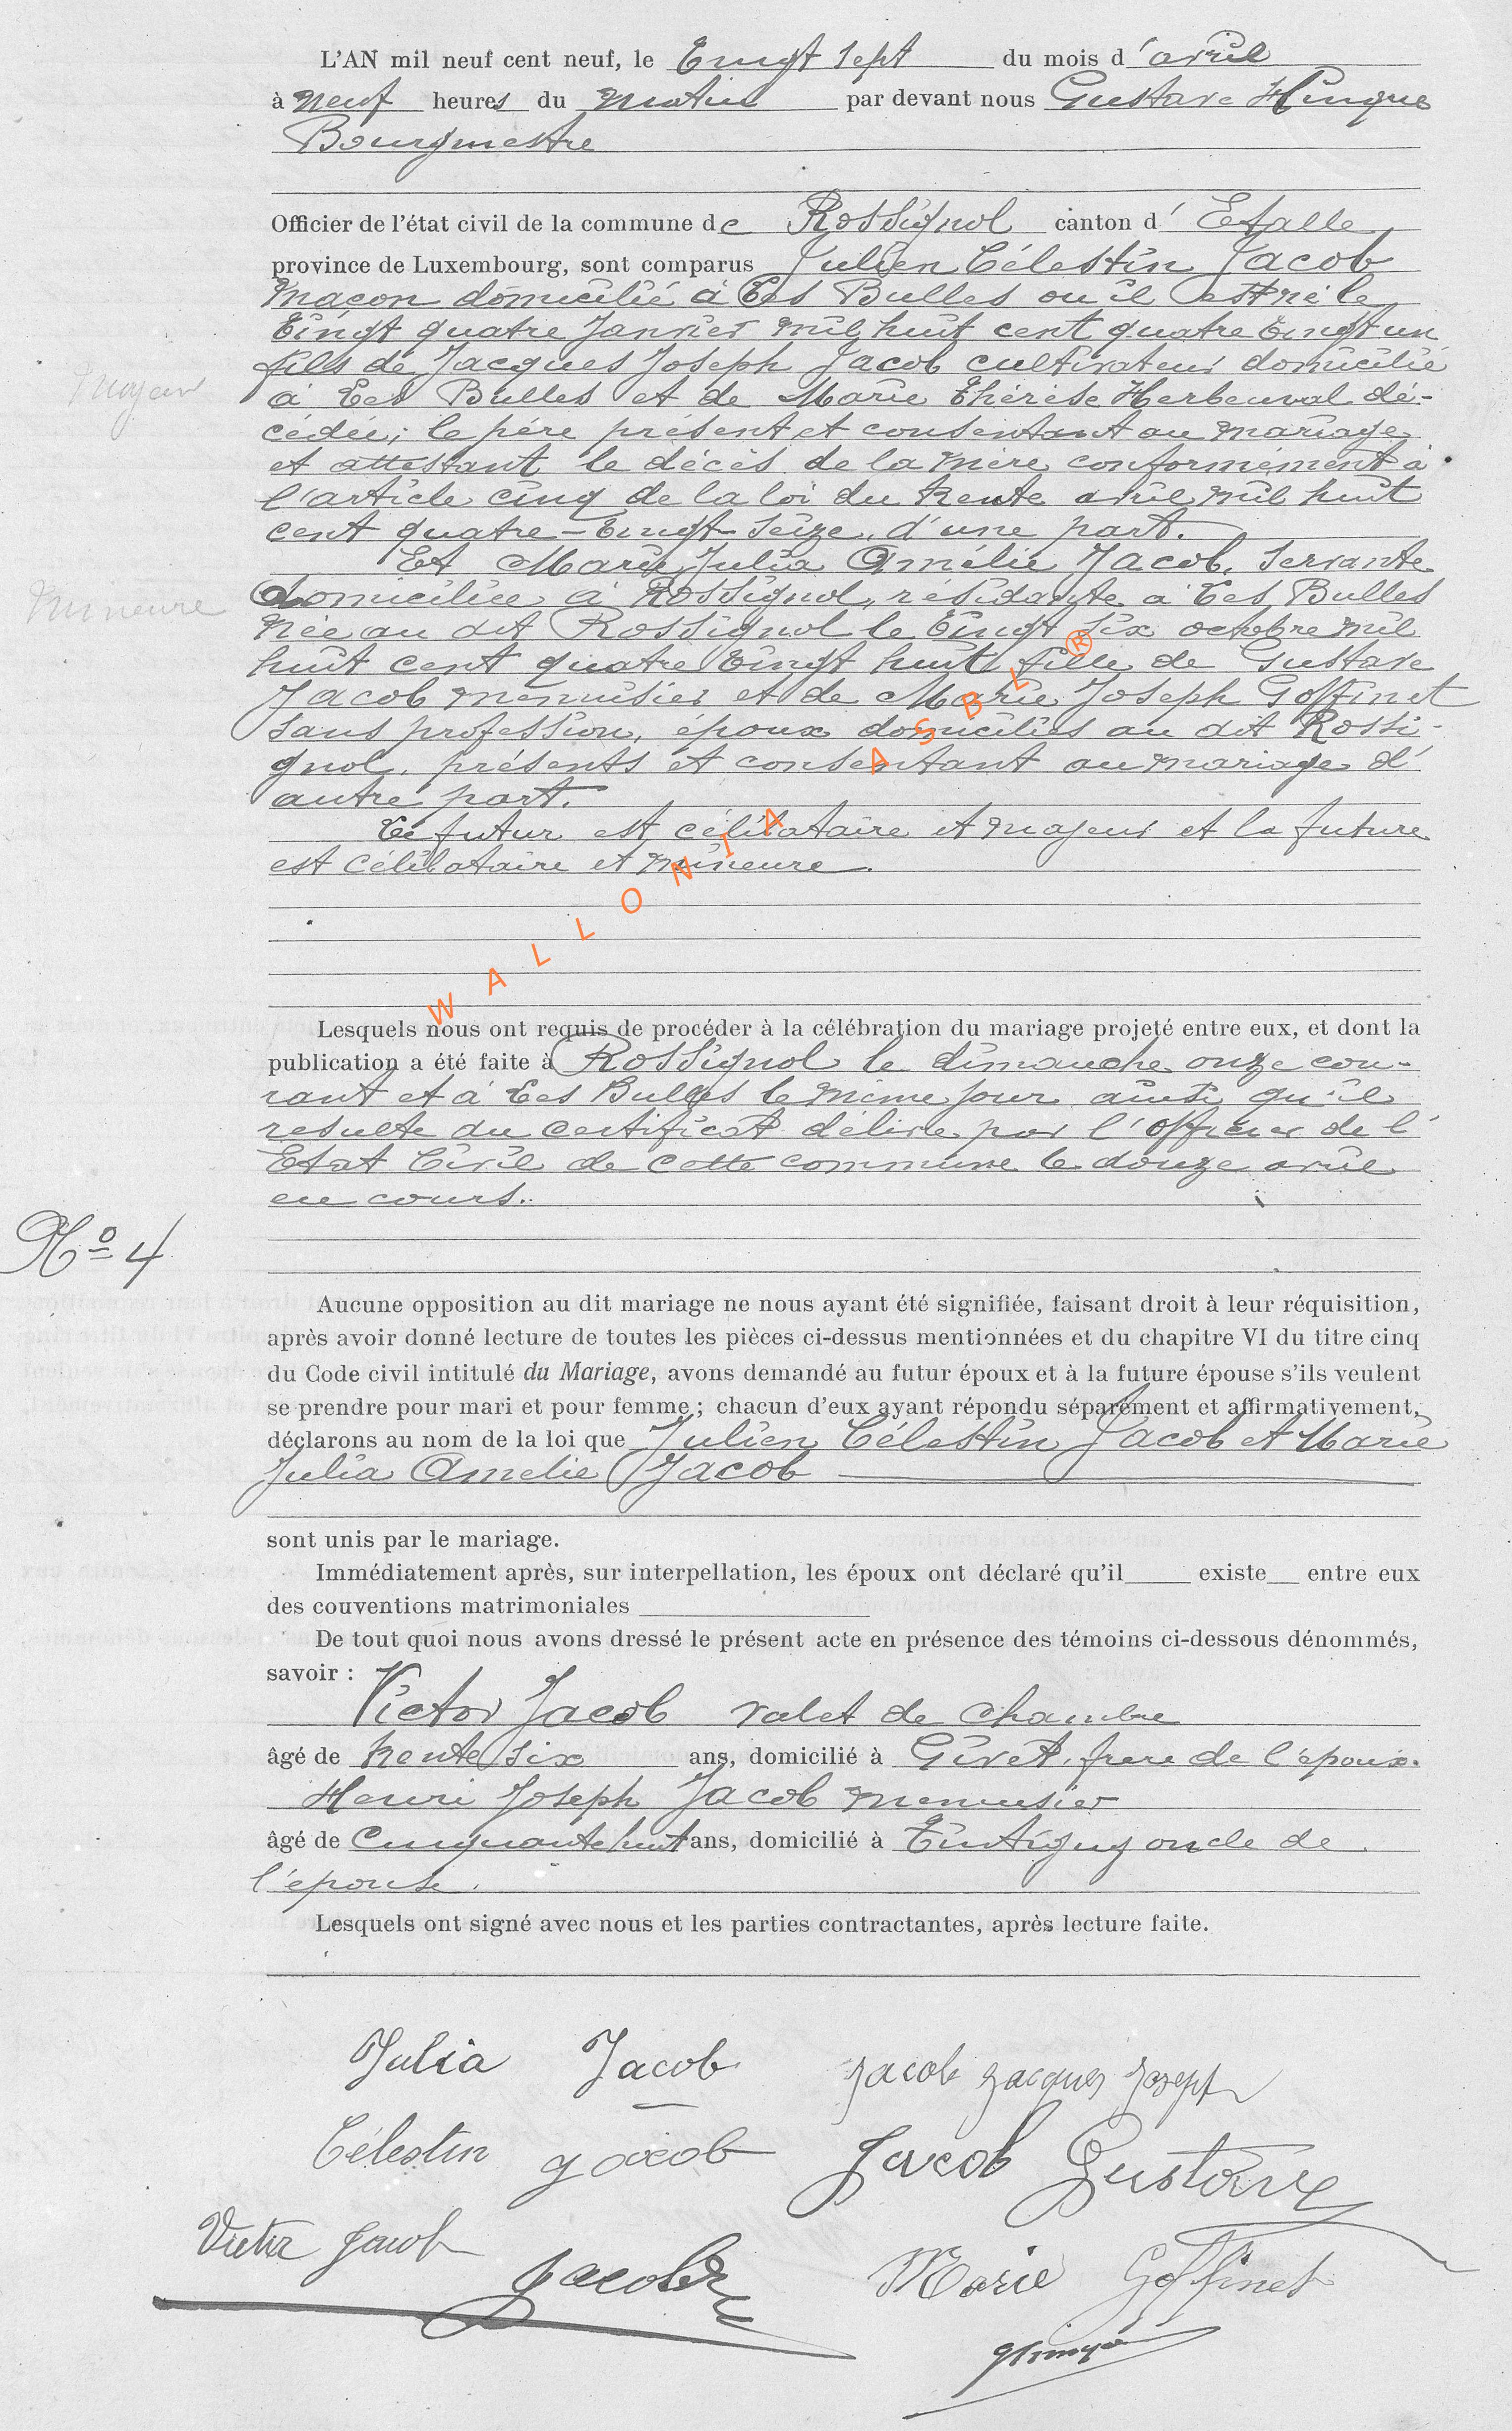 L'AN mil neuf cent neuf, le Vingt Sept du mois d'avril
à neuf heures du matin par devant nous Gustave
Bourgmestre
Officier de l'état civil de la commune de Rossignol canton d' Etalle
province de Luxembourg, sont comparus Julien Célestin Jacob
maçon domicilié à Les Bulles ou il est né le
Vingt quatre Janvier mil huit cent quatre Vingt un
fils de Jacques Joseph Jacob cultivateur domicilié
Majeur
à Les Bulles et de Marie Thérèse Herbeuval dé-
cédée; le père présent et consentant au mariage
et attestant le décès de la mère conformément à
l'article cinq de la loi du trente avril mil huit
cent quatre-Vingt-Seize, d'une part.
Et Marie Julia Amélie Jacob, Servante
Mineure
domiciliée à Rossignol, résidante à Les Bulles
née au dit Rossignol le Vingt Six octobre mil
huit cent quatre Vingt huit fille de Gustave
Jacob menuisier et de Marie Joseph Goffinet
Sans profession, époux domiciliés au dit Rossi-
gnol, présents et consentant au mariage d'
autre part.
Le futur est célibataire et majeur et la future
est célibataire et mineure.
WALLONIA ASBL ®
Lesquels nous ont requis de procéder à la célébration du mariage projeté entre eux, et dont la
publication a été faite à Rossignol le dimanche onze cou-
rant et à Les Bulles le même jour ainsi qu'il
resulte du certificat délivré par l'officier de l'
Etat Civil de cette commune le douze avril
en cours.
No 4
Aucune opposition au dit mariage ne nous ayant été signifiée, faisant droit à leur réquisition,
après avoir donné lecture de toutes les pièces ci-dessus mentionnées et du chapitre VI du titre cinq
du Code civil intitulé du Mariage, avons demandé au futur époux et à la future épouse s'ils veulent
se prendre pour mari et pour femme ; chacun d'eux ayant répondu séparément et affirmativement,
déclarons au nom de la loi que Julien Célestin Jacob et Marie
Julia Amelie Jacob
sont unis par le mariage.
Immédiatement après, sur interpellation, les époux ont déclaré qu'il existe entre eux
des conventions matrimoniales
De tout quoi nous avons dressé le présent acte en présence des témoins ci-dessous dénommés,
savoir :
Victor Jacob valet de chambre
âgé de trente Six ans, domicilié à Givet, frere de l'époux.
Henri Joseph Jacob menuisier
âgé de Cinquante huit ans, domicilié à Tintigny oncle de
l'epouse.
Lesquels ont signé avec nous et les parties contractantes, après lecture faite.
Julia Jacob Jacob Jacques Joseph
Célestin Jacob Jacob Gustave
Victor Jacob Jacob Marie Goffinet